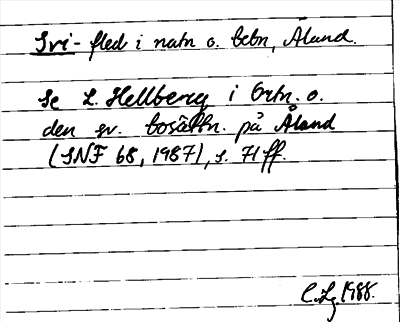 Svi- fled i natn o. bebn, Åland.
Se L. Hellberg i Ortn. o.
den sv. bosättn. på Åland
(SNF 68, 1987), s. 71 ff.
C.Lg 1988.